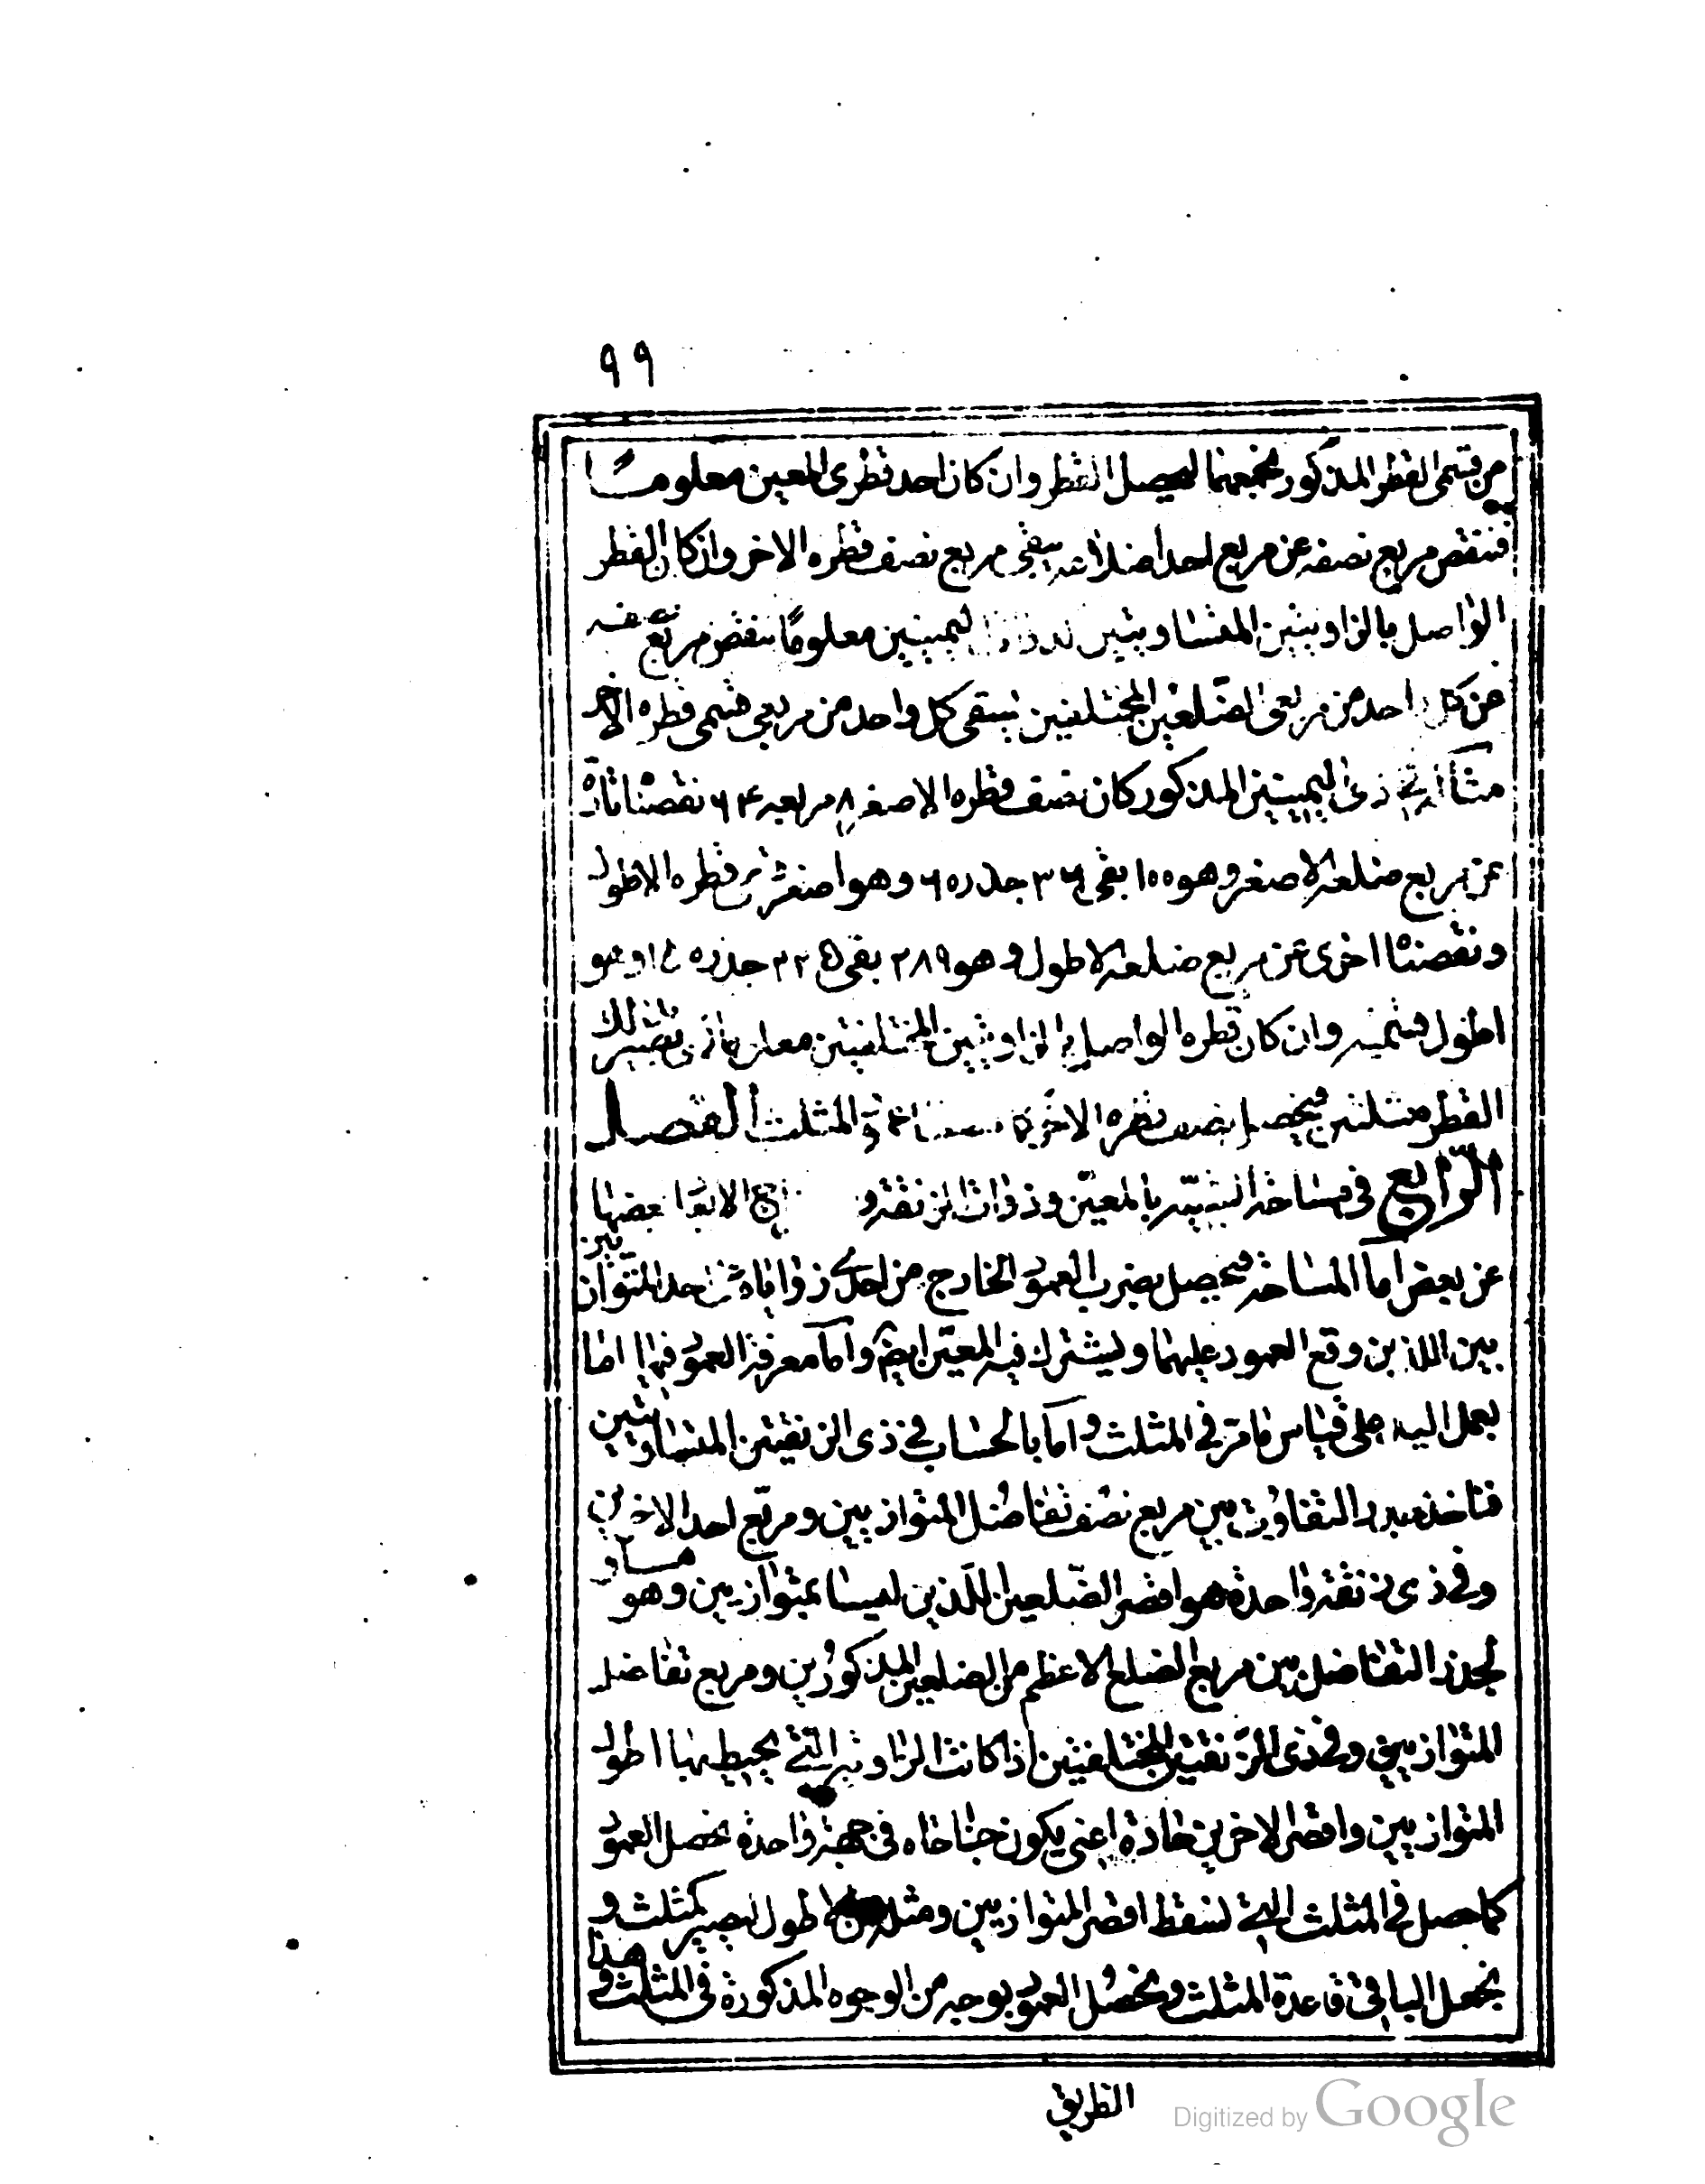 ٩٩
من قسمى القطر المذكور نجمعهما ليحصل القطر وان كان احد قطرى المعين معلومًا
فننقص مربع نصفه عن مربع احد اضلاعه يبقى مربع نصف قطره الاخر وان كان القطر
الواصل بالزاويتين المتساويتين اليمينين معلومًا ننقص مربع نصفه
عن كل واحد من مربعى الضلعين المختلفين يبقى كل واحد من مربعى قسمى قطره الاخر
مثاله فى ذى اليمينين المذكور كان نصف قطره الاصغر ٨ مربعه ۶۴ نقصناه تارة
عن مربع ضلعه الاصغر وهو ١٠٠ بقى ٣۶ جذره ۶ وهو اصغر قسمى قطره الاطول
ونقصناه اخرى عن مربع ضلعه الاطول وهو ٢٨٩ بقى ٢٢۵ جذره ١۵ وهو
اطول قسميه وان كان قطره الواصل بالزاويتين المختلفتين معلومًا ذى بقسم ذلك
القطر مثلثين فيحصل نصف قطره الاخر كما فى المثلث الفصل
الرّابع فى مساحة الشبيه بالمعيّن وذوات الزنقة و الابعاد بعضها
عن بعض اما المساحة فيحصل بضرب العمود الخارج من احدى زواياه على احد المتوازيين
بين اللذين وقع العمود عليهما ويشترك فيه المعيّن ايضًا وامّا معرفة العمود فيها اما
بعمل اليد على قياس ما مرّ فى المثلث وامّا بالحساب فى ذى الزنقتين المتساويتين
فناخذ جذر التفاوت بين مربع نصف تفاضل المتوازيين ومربّع احد الاخرين
وفى ذى زنقة واحدة هو اقصر الضّلعين اللّذين ليسا بمتوازيين وهو مساو
لجذر التفاضل بين مربع الضلع الاعظم من الضلعين المذكورين ومربع تفاضل
المتوازيين وفى ذى الزّنقتين المختلفتين اذا كانت الزاوية التى يحيط بها اطول
المتوازيين واقصر الاخرين حادة اعنى يكون جناحاه فى جهة واحدة نحصل العمود
كما حصل فى المثلث اى نسقط اقصر المتوازيين ومثله من الاطول ليصير كمثلث و
نجعل الباقى قاعدة المثلث ونحصل العمود بوجه من الوجوه المذكورة فى المثلث و هذا
الطريق
Digitized by Google